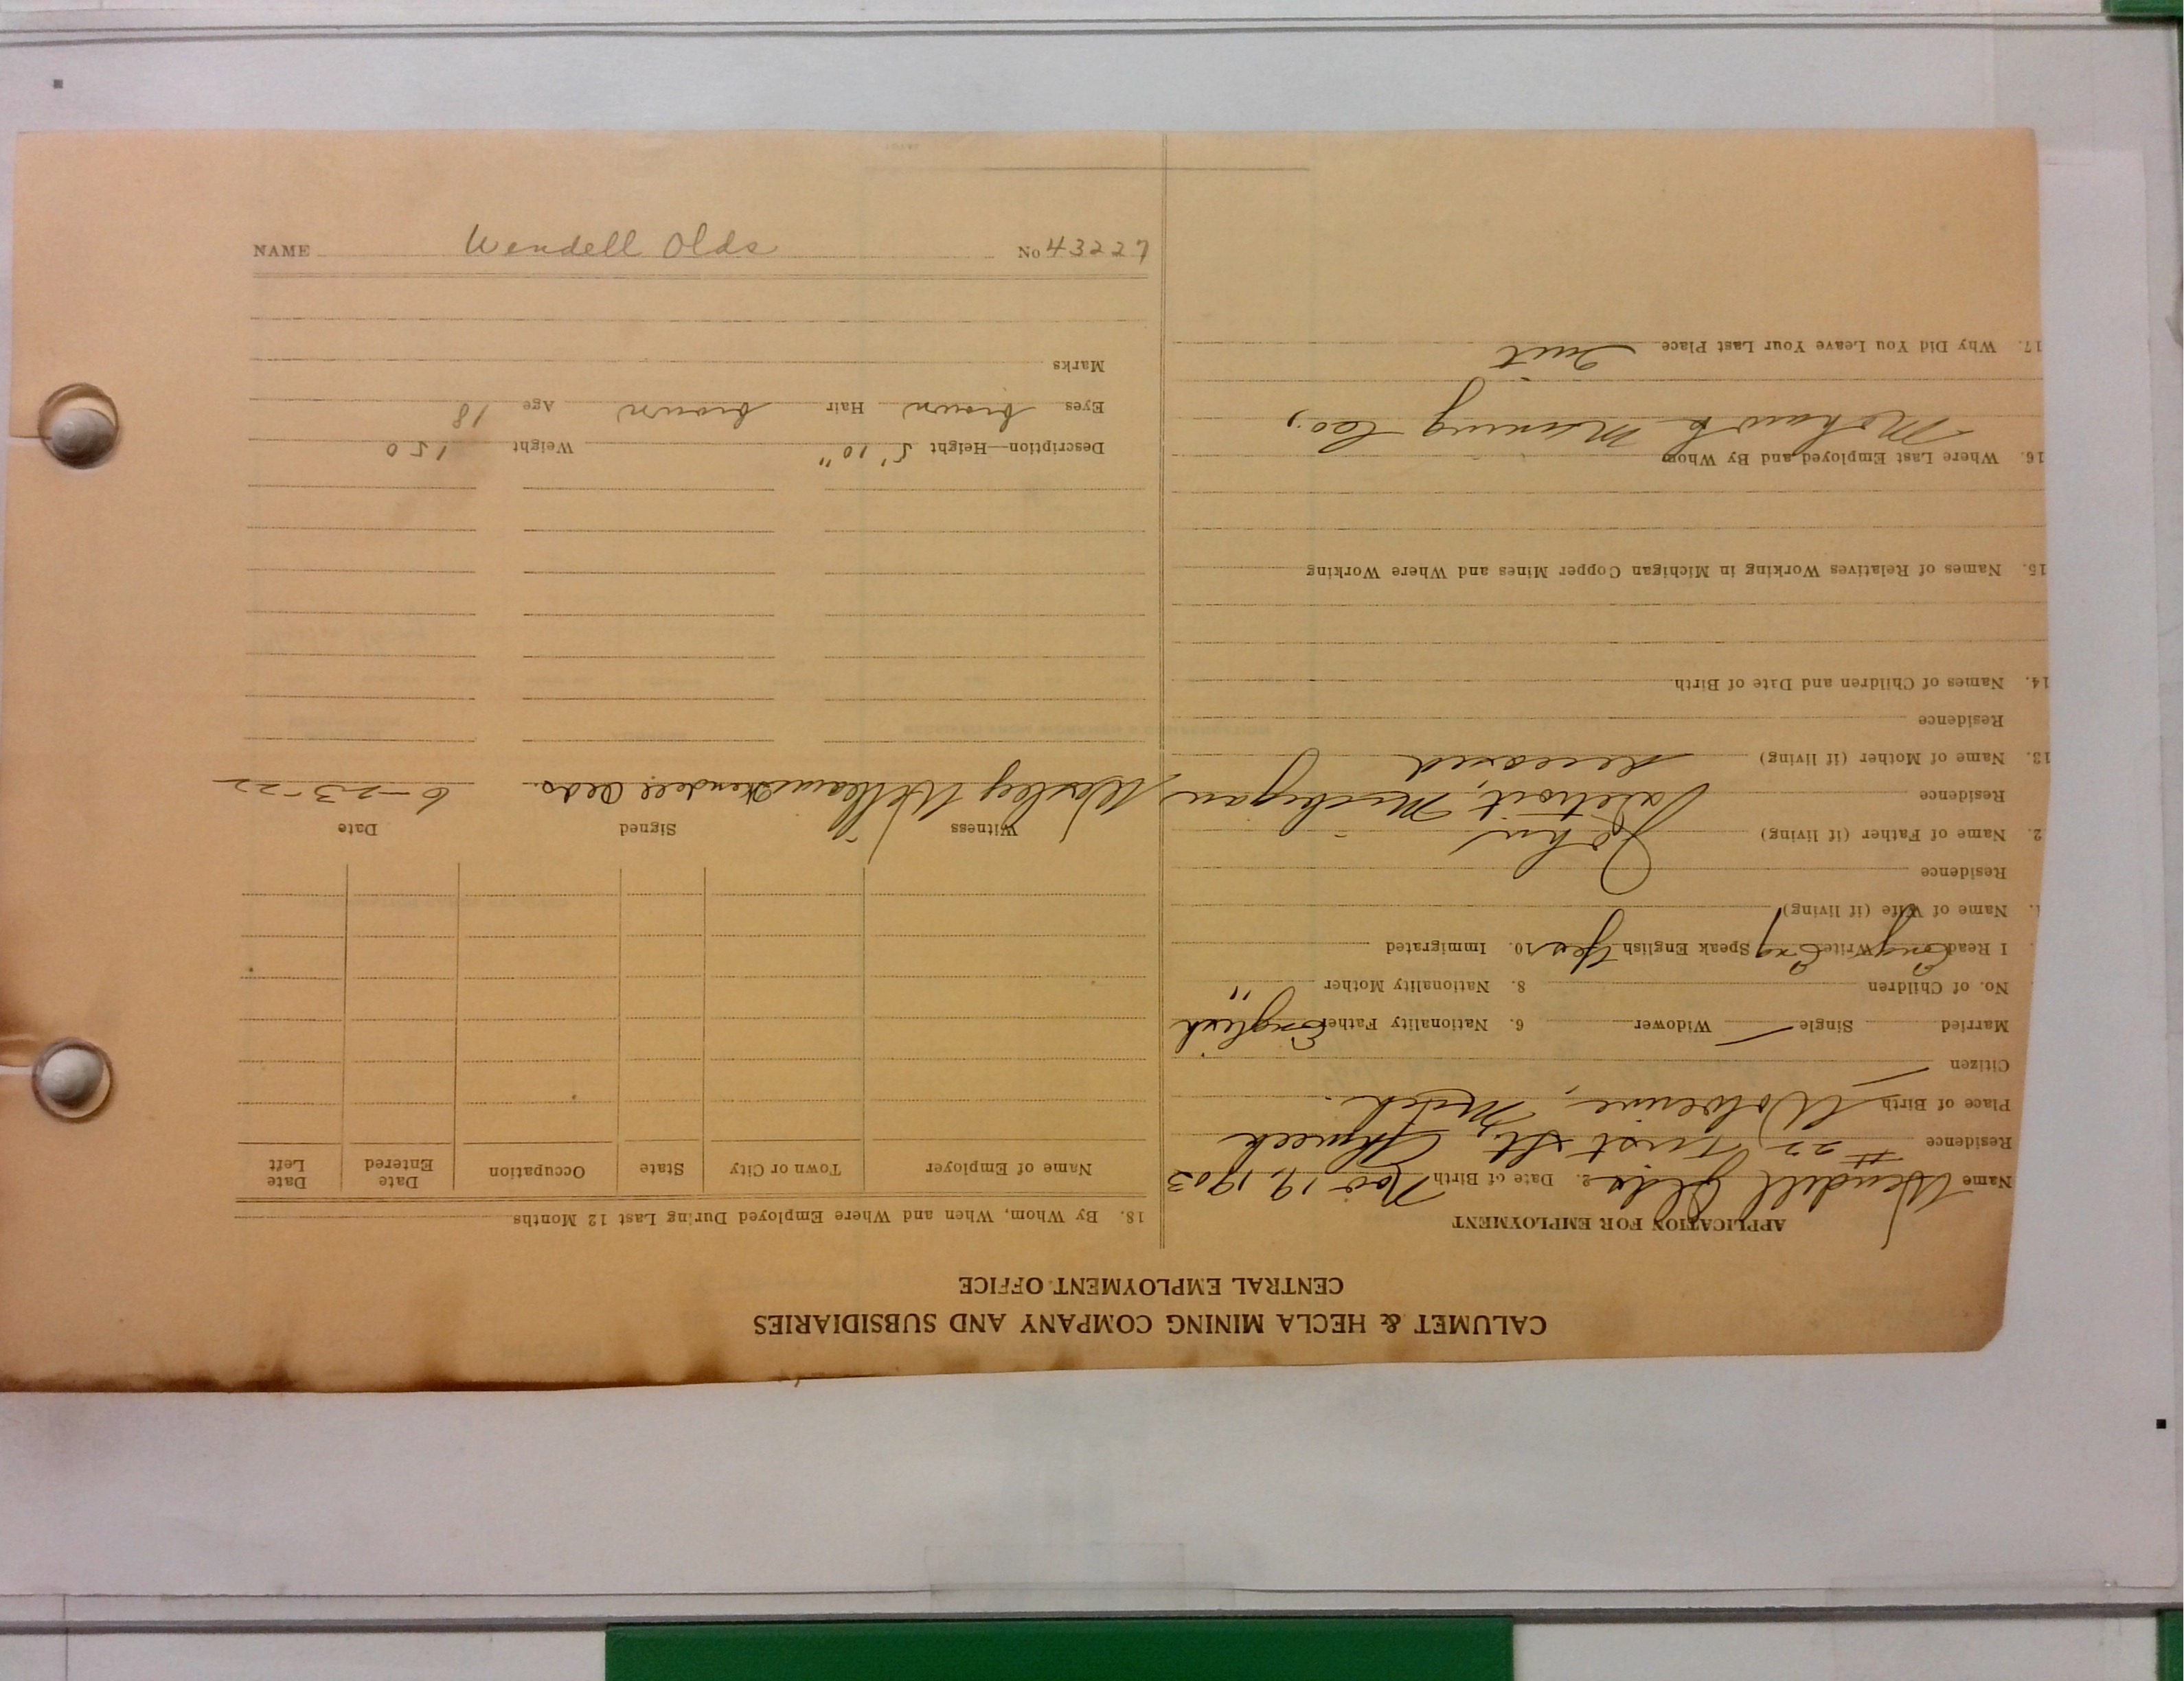 CALUMET & HECLA MINING COMPANY AND SUBSIDIARIES
CENTRAL EMPLOYMENT OFFICE
APPLICATION FOR EMPLOYMENT
Name Wendell Olds 2. Date of Birth Nov 19, 1903
Residence #22 First St, Ahmeek
Place of Birth Wolverine, Mich.
Citizen
Married Single Widower 6. Nationality Father English
No. of Children 8. Nationality Mother "
I Read Eng Write Eng Speak English Yes 10. Immigrated
Name of Wife (if living)
Residence
2. Name of Father (if living) John
Residence Detroit, Michigan
13. Name of Mother (if living) deceased
Residence
14. Names of Children and Date of Birth
15. Names of Relatives Working in Michigan Copper Mines and Where Working
16. Where Last Employed and By Whom
Mohawk Mining Co.,
17. Why Did You Leave Your Last Place Quit
18. By Whom, When and Where Employed During Last 12 Months
Name of Employer Town or City State Occupation Date Entered Date Left
Witness Signed Date
Wesley Williams Wendell Olds. 6-23-22
Description—Height 5' 10" Weight 150
Eyes brown Hair brown Age 18
Marks
NAME Wendell Olds No 43227